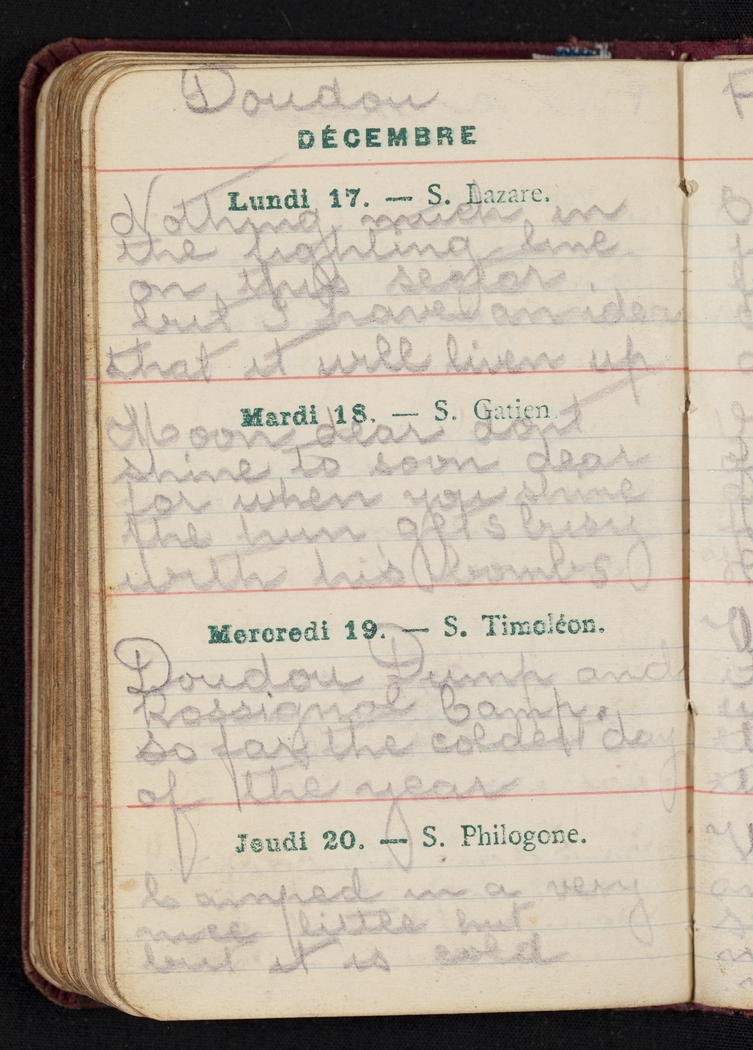 Doudou
DÉCEMBRE
Lundi 17. — S. Lazare.
Nothing much in
the fighting line
on this segtor
but I have an idea
that it will liven up
Mardi 18. — S. Gatien.
Moon dear dont
shine to soon dear
for when you shine
the hun gets busy
with his bombs
Mercredi 19. — S. Timoléon.
Doudou Dump and
Rossignol Camp.
so far the coldest day
of the year
Jeudi 20. — S. Philogone.
Camped in a very
nice little hut
but it is cold